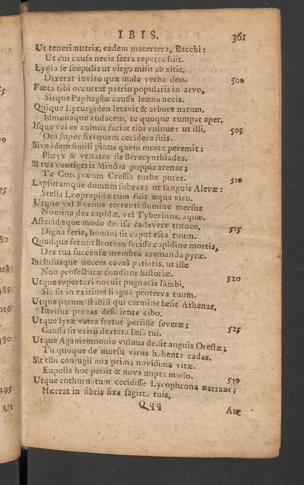 IBIS. 361
Ut teneri nutrix, eadem matertera, Bacchi:
Ut cui causa necis serra reperta fuit.
Lydia se scopulis ut virgo misit ab altis,
Dixerat invito quæ mala verba deo. 500
Fœta tibi occurrat patrio popularis in arvo,
Sitque Paphageæ causa leæna necis.
Quique Lycurgiden letavit & arbore natum,
Idmonaque audacem, te quoque rumpat aper,
Isque vel ex animis faciat tibi vulnus: ut illi, 505
Ora super fixi quem cecidere suis.
Sive idem simili pinus quem morte peremit:
Phryx & venator sis Berecynthiades.
Si tua contigerit Minoas puppis arenas;
Te Corcyræum Cressia turba putet. 510
Lapsuramque domum subeas; ut sanguis Alevæ:
Stella Leoprepidæ cum fuit æqua viro.
Utque vel Evenus torrenti flumine mersus
Nomina des rapidæ, vel Tyberinus, aquæ.
Astacidæque modo decisa cadavere trunco, 515
Digna feris, homini sit caput esca tuum.
Quodque ferunt Broteam fecisse cupidine mortis,
Des tua succensæ membra cremanda pyræ.
Inclususque necem cavea patiaris, ut ille
Non profecturæ conditor historiæ. 520
Utque repertori nocuit pugnacis Iambi,
Sic sit in exitium lingua proterva tuum.
Utque parum stabili qui carmine læsit Athenas,
Invisus pereas deficiente cibo.
Utque lyræ vates fertur periisse severæ;
Causa sit exitii dextera læsa tui. 525
Utque Agamemnonio vulnus dedit anguis Orestæ;
Tu quoque de morsu virus habente cadas.
Sit tibi conjugii nox prima novissima vitæ.
Eupolis hoc periit & nova nupta modo. 530
Utque cothurnatum cecidisse Lycophrona narrant;
Hæreat in fibris fixa sagitta tuis.
Qqq Aut